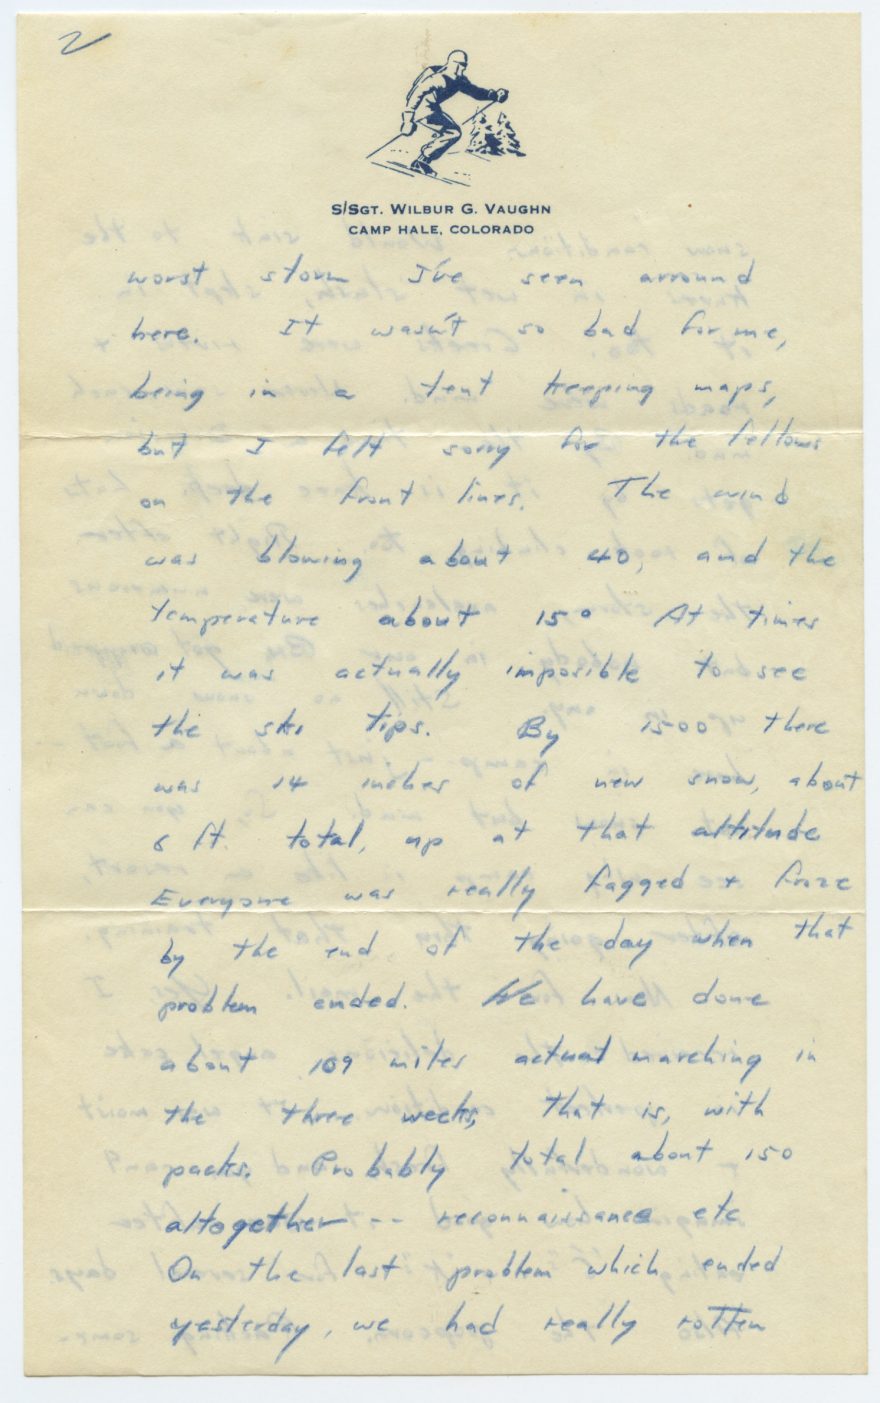 2
S/SGT. WILBUR G. VAUGHN
CAMP HALE, COLORADO
worst storm I've seen arround
here. It wasn't so bad for me,
being in a tent keeping maps,
but I felt sorry for the fellows
on the front lines. The wind
was blowing about 40, and the
temperature about 15° At times
it was actually imposible to see
the ski tips. By 1500 there
was 14 inches of new snow, about
6 ft. total, up at that altitude
Everyone was really fagged + froze
by the end of the day when that
problem ended. We have done
about 109 miles actual marching in
the three weeks, that is, with
packs. Probably total about 150
altogether -- reconnaissance etc
On the last problem which ended
yesterday, we had really rotten